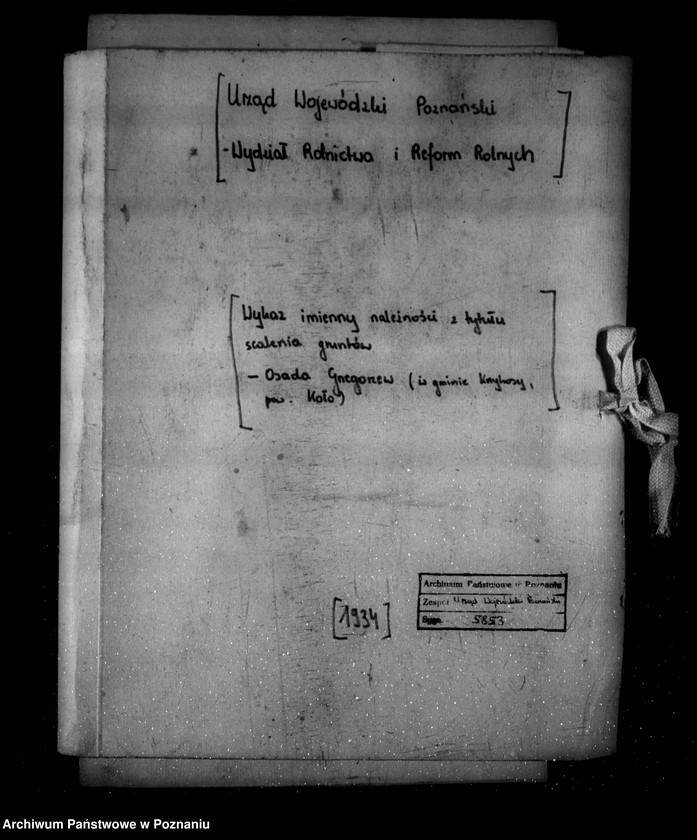 [Urząd Wojewódzki Poznański
-Wydział Rolnictwa i Reform Rolnych]
[Wykaz imienny należności z tytułu
scalenia gruntów
- Osada Grzegorzew (w gminie Krzykosy,
pow. Koło)]
[1934]
Archiwum Państwowe w Poznaniu
Zespół Urząd Wojewódzki Poznański
Sygn. 5853
Archiwum Państwowe w Poznaniu